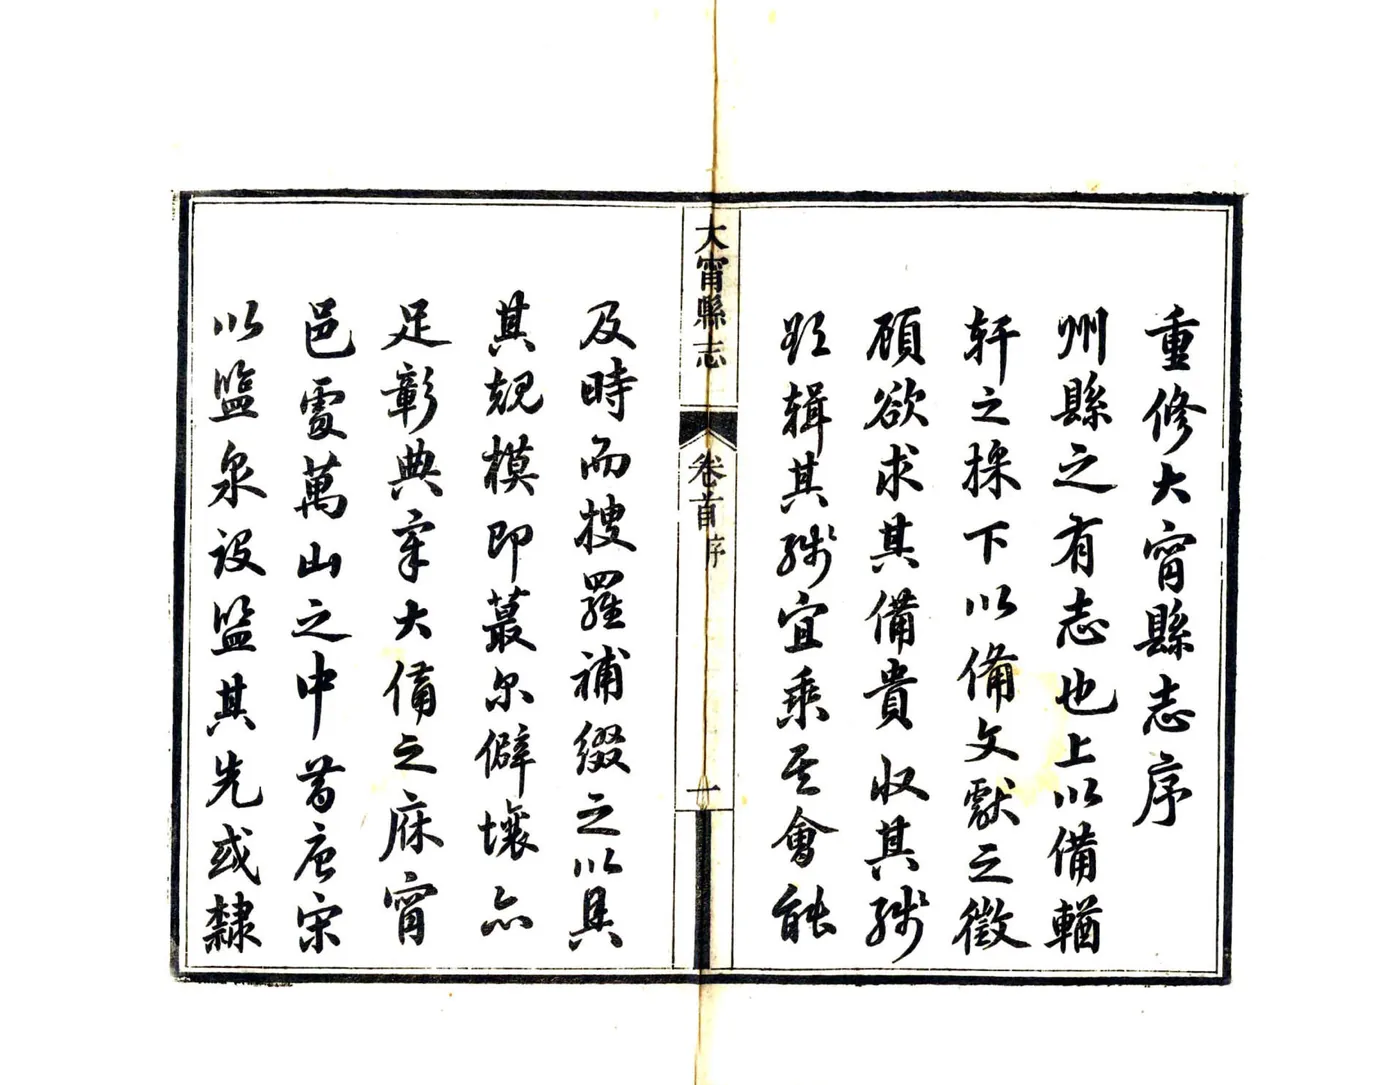 重修大甯縣志序
州縣之有志也上以備輶
軒之採下以備文獻之徵
顧欲求其備貴收其殘
輯其殘宜乘其會能
大甯縣志 卷首 序 一
及時而搜羅補綴之以具
其規模即蕞尔僻壤亦
足彰典章大備之庥甯
邑處萬山之中昔唐宋
以監泉設監其先或隸